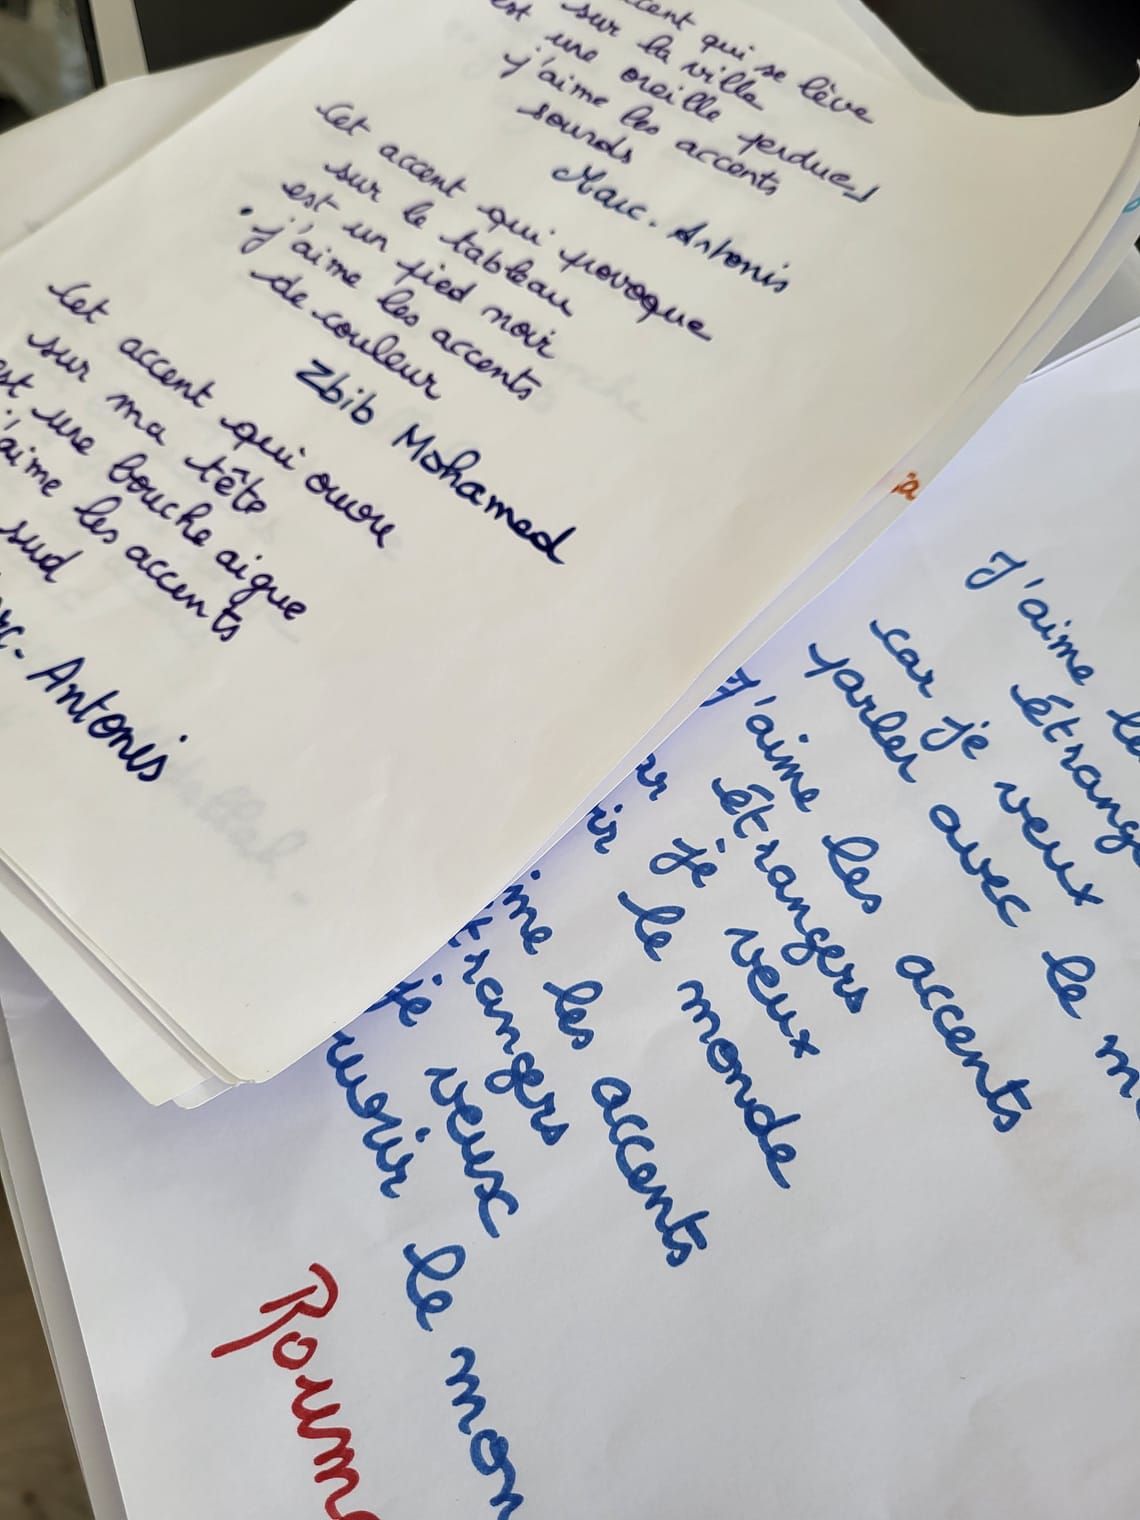 cent qui se lève
sur la ville
est une oreille perdue
j'aime les accents
sourds
Marc. Antonis
Cet accent qui provoque
sur le tableau
est un pied noir
. j'aime les accents
de couleur
Zbib Mohamed
Cet accent qui ouvre
sur ma tête
est une bouche aigue
j'aime les accents
sud
rc-Antonis
ia
J'aime le
étrange
car je veux
parler avec le m
J'aime les accents
étrangers
ar je veux
ir le monde
ime les accents
étrangers
je veux
uvoir le mon
Roum